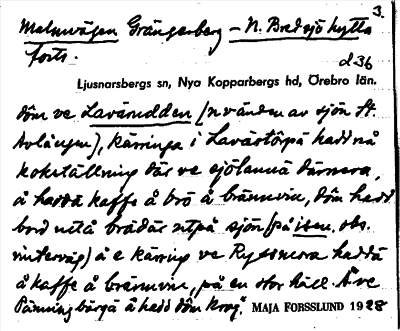 3.
Malmvägen Grängesberg – N. Bredsjö hytta
forts.
d. 36
Ljusnarsbergs sn, Nya Kopparbergs hd, Örebro län.
döm ve Lavärudden (n vänden av sjön St.
kärringa i Lavästörpä hadd nå
kokställning där ve sjölannä därnera,
å haddä kaffe å brö å brännvin, döm hadd
bord utå brädär utpå sjön (på isen. obs.
vinterväg) å e kärring ve Ryssnora haddä
å kaffe å brännvin, på en stor häll. Å ve
Pänningbärgä å hadd döm krog". MAJA FORSSLUND 1928